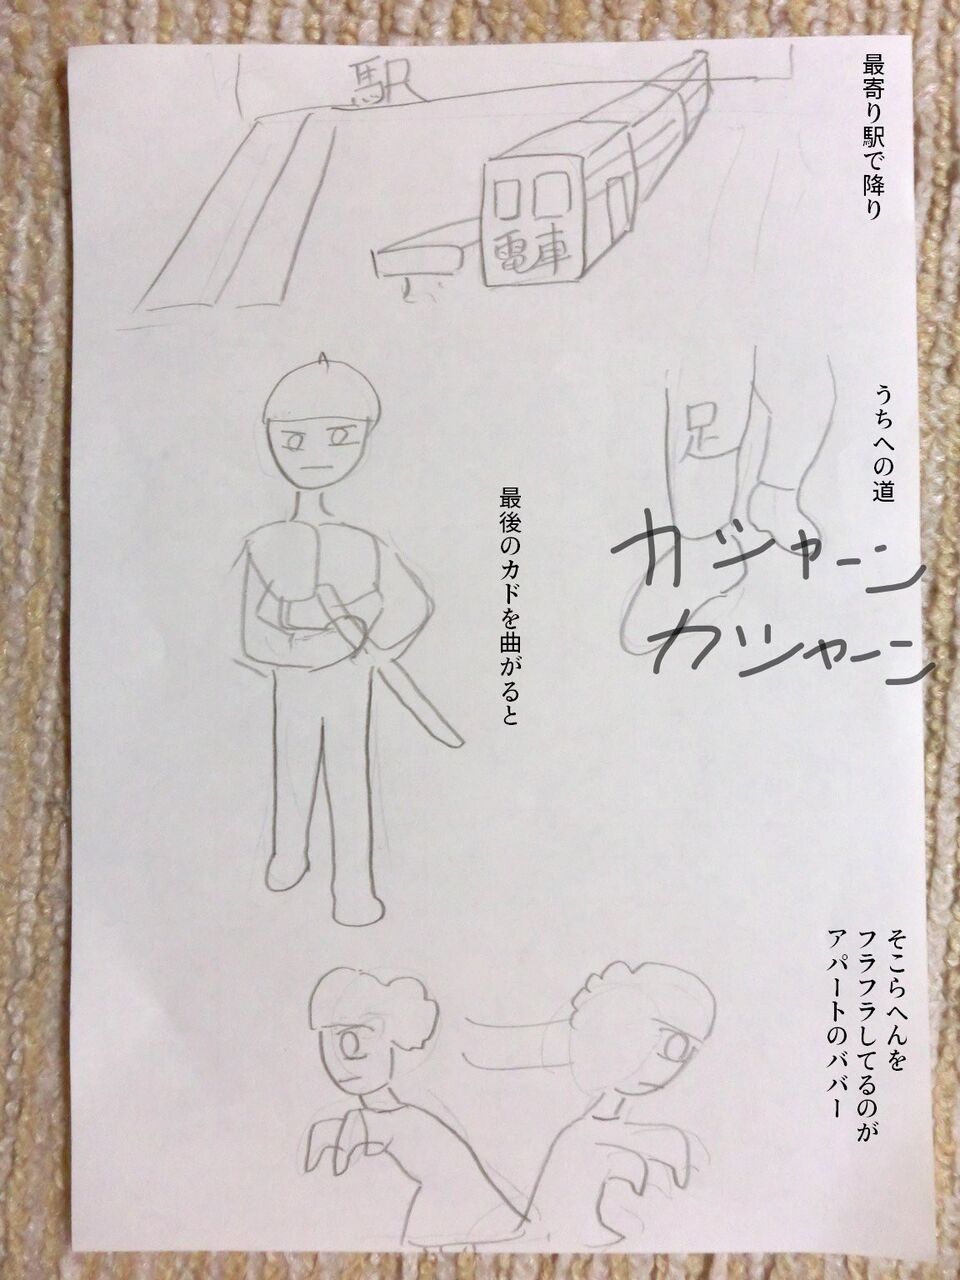 最寄り駅で降り
駅
電車
うちへの道
足
カシャーン
カシャーン
最後のカドを曲がると
そこらへんを
フラフラしてるのが
アパートのババー